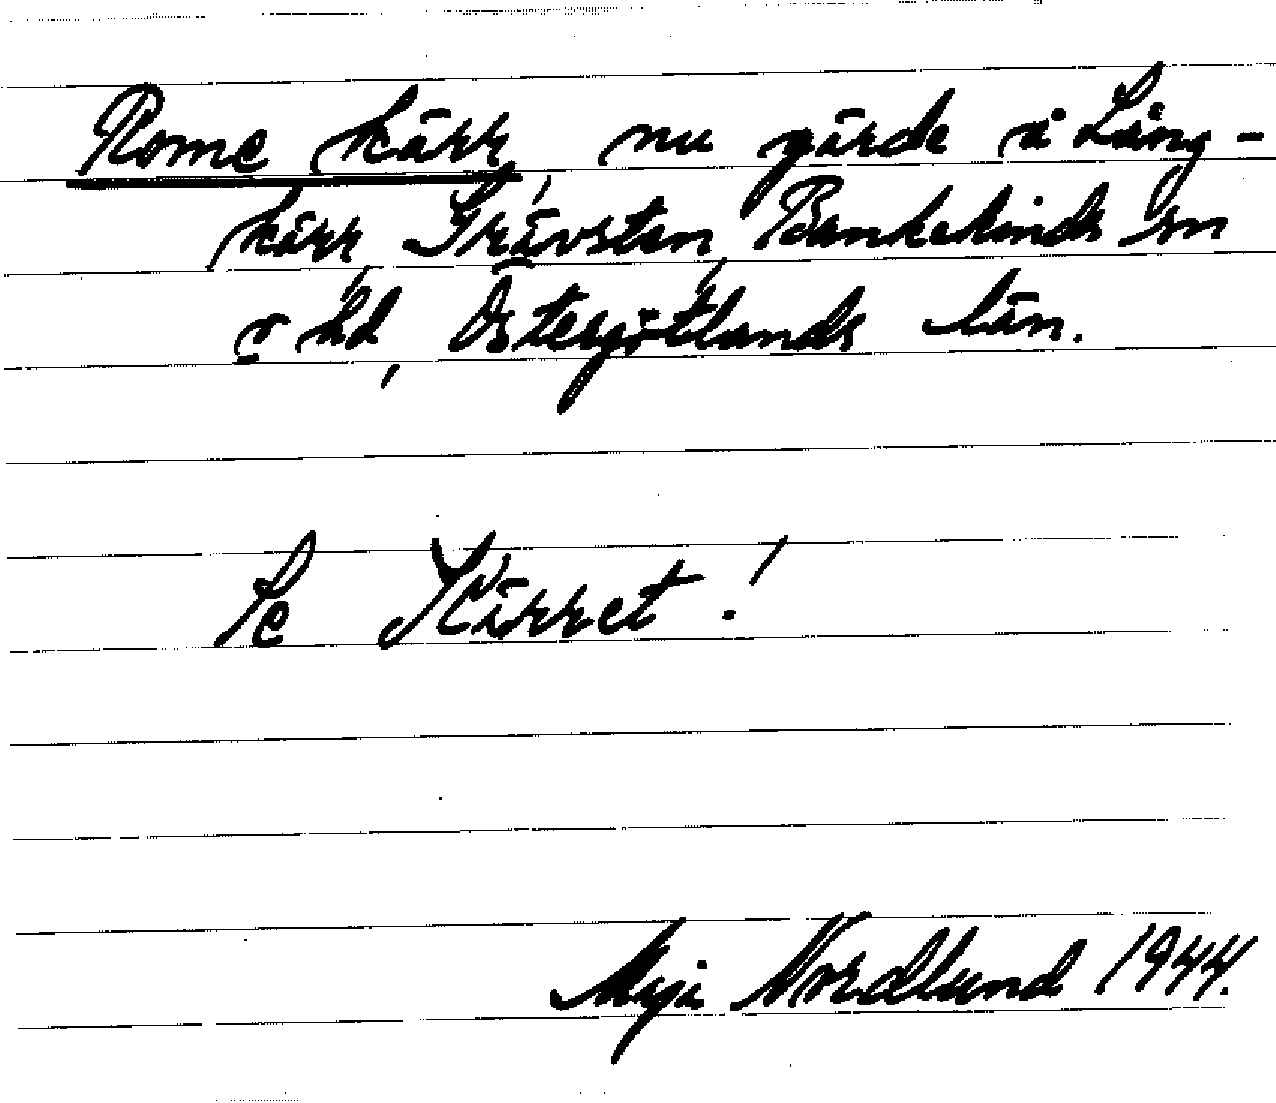 Rome kärr, nu gärde i Lång-
kärr, Grävsten, Bankekinds sn
o hd, Östergötlands län.
Se Kärret!
Maja Nordlund 1944.